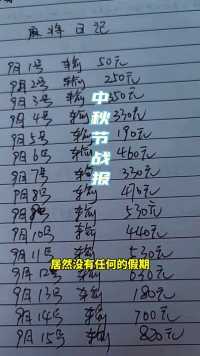 麻将日记
9月1号 输 50元
9月2号 输 250元
9月3号 输 350元
9月4号 输 330元
9月5号 输 190元
9月6号 输 460元
9月7号 输 330元
9月8号 输 470元
9月9号 输 530元
9月10号 输 440元
9月11号 输 530元
9月12号 输 630元
9月13号 输 180元
9月14号 输 700元
9月15号 输 820元
中秋节战报
居然没有任何的假期